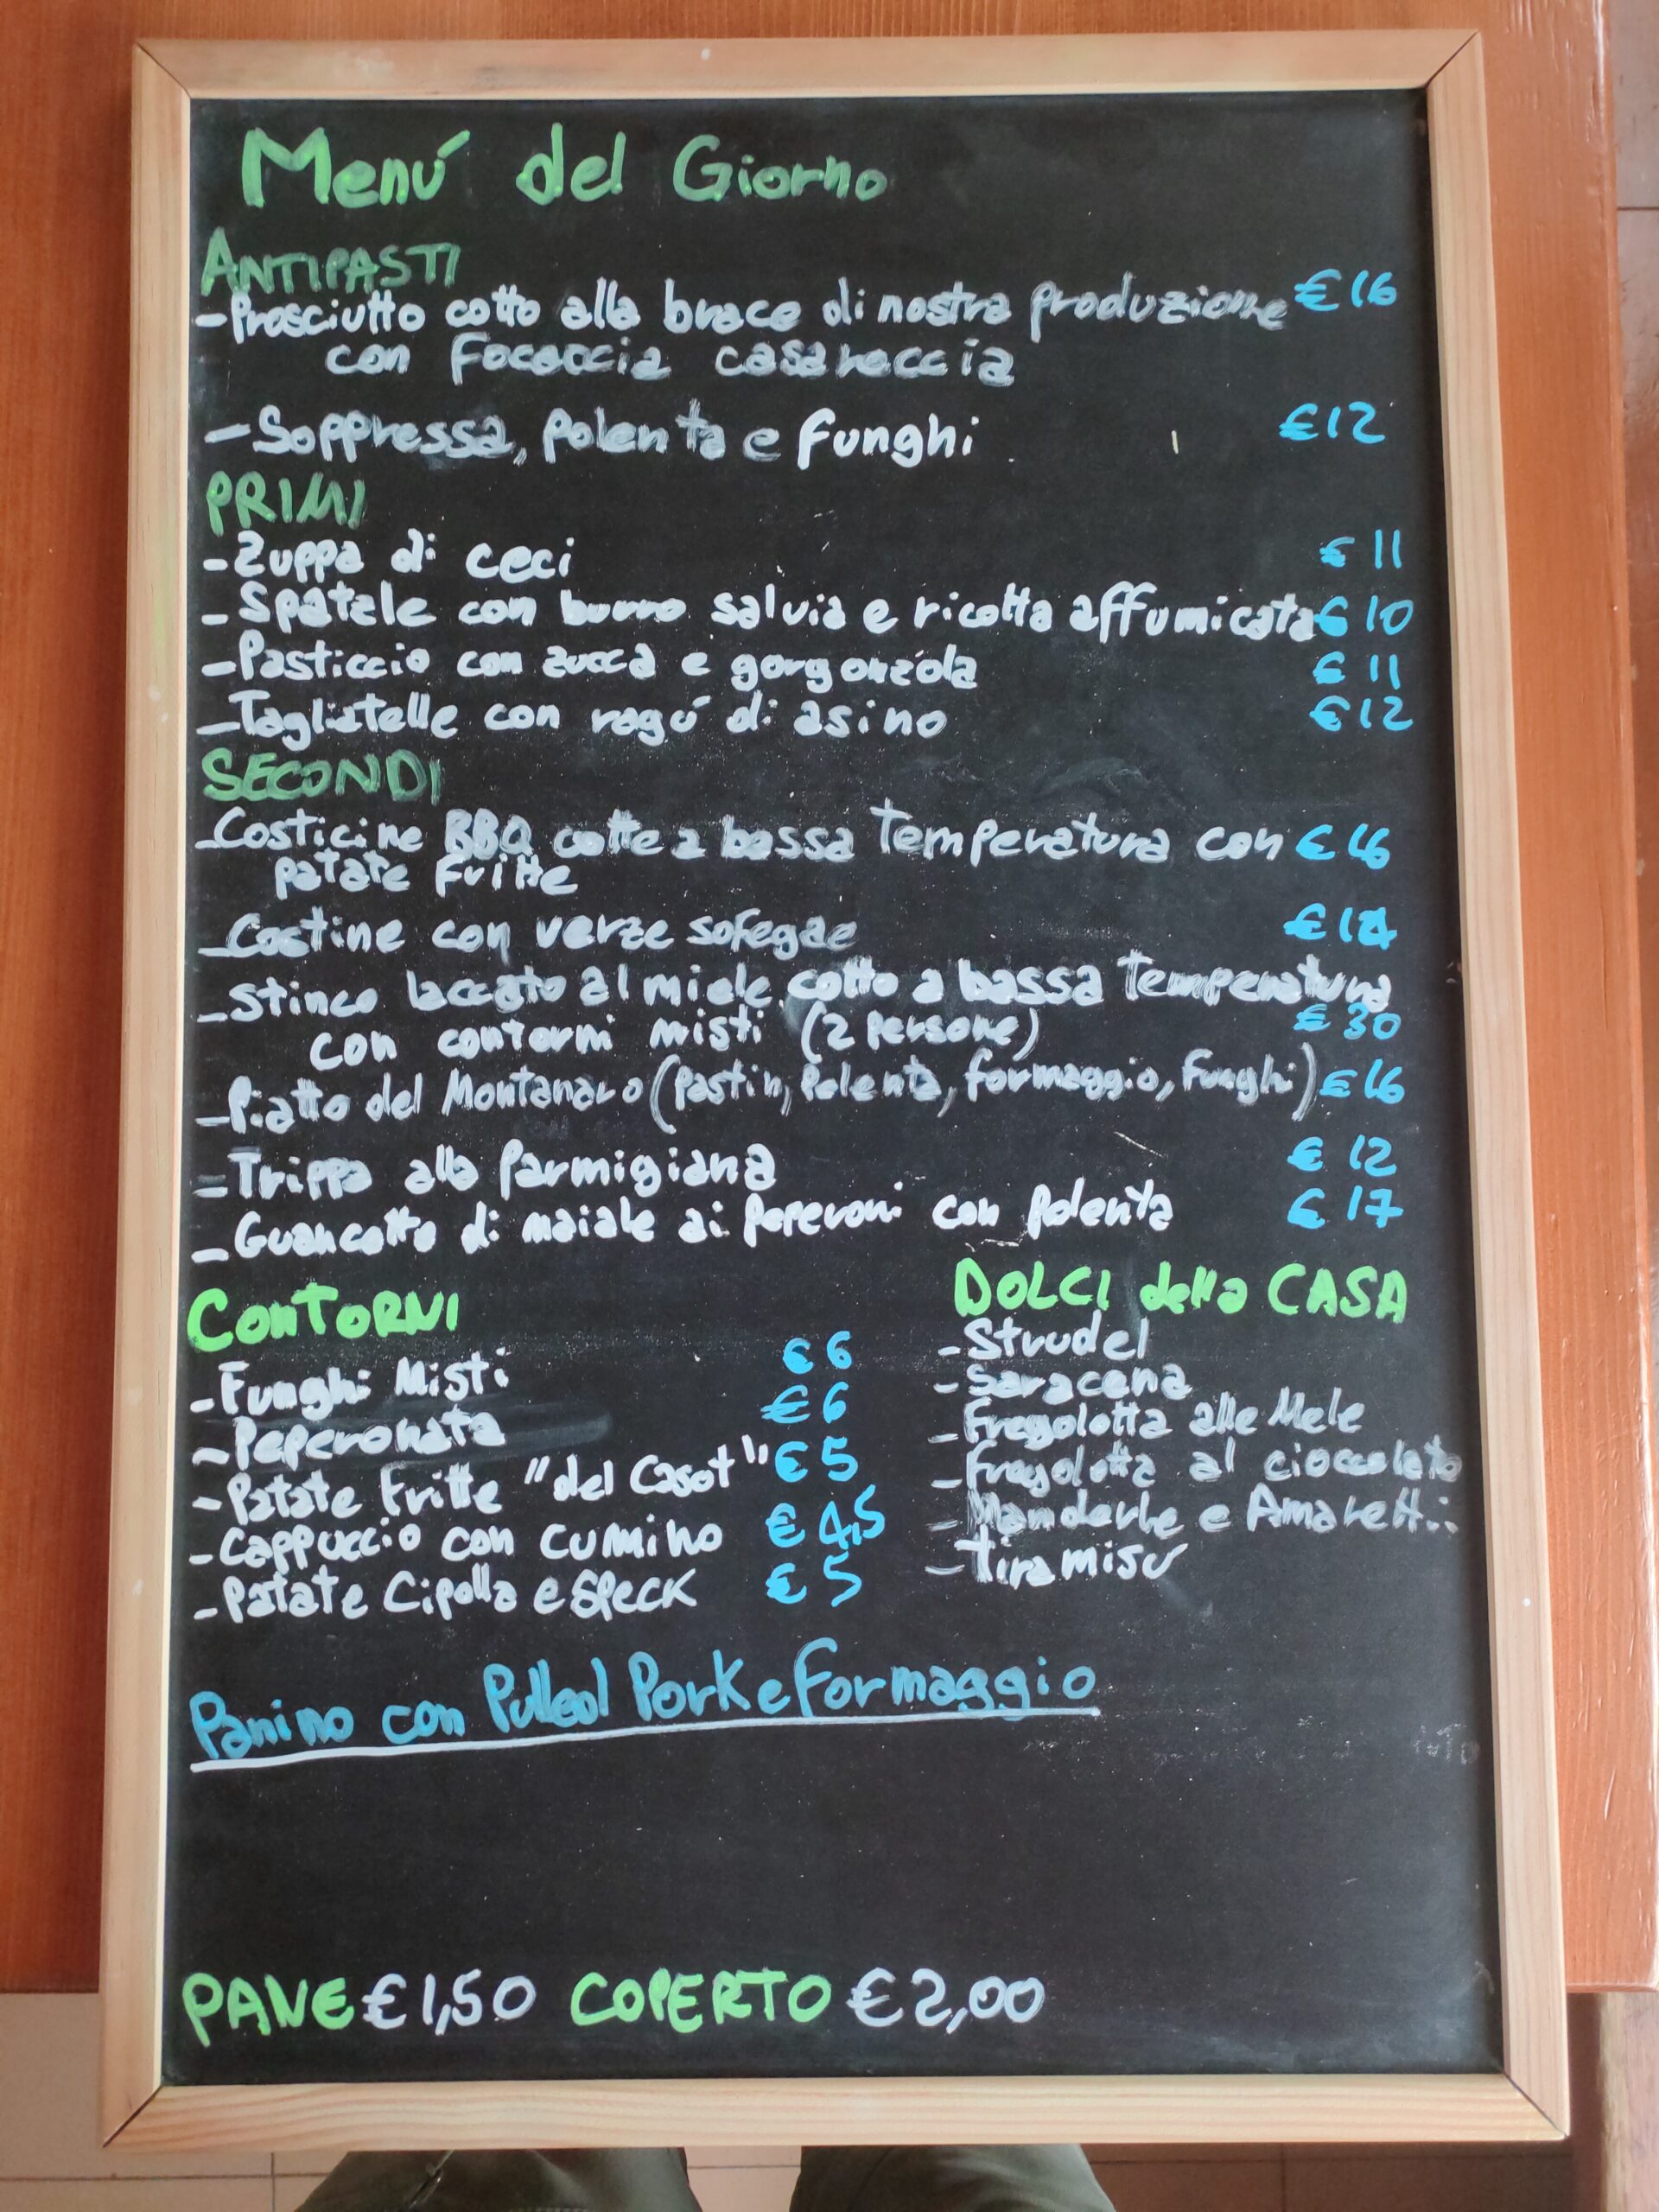 Menú del Giorno
ANTIPASTI
- Prosciutto cotto alla brace di nostra produzione €16
con Focaccia casareccia
- Soppressa, polenta e funghi €12
PRIMI
- Zuppa di ceci €11
- Spatzle con burro salvia e ricotta affumicata €10
- Pasticcio con zucca e gorgonzola €11
- Tagliatelle con ragú di asino €12
SECONDI
- Costicine BBQ cotte a bassa temperatura con €16
patate fritte
- Costine con verze sofegae
- Stinco laccato al miele, cotto a bassa temperatura
con contorni misti (2 persone) €30
- Piatto del Montanaro (Pastin, Polenta, formaggio, Funghi) €16
- Trippa alla Parmigiana €12
- Guancotto di maiale ai Peperoni con Polenta €17
CONTORNI
- Funghi Misti €6
- Peperonata €6
- Patate Fritte "del Casot" €5
- Cappuccio con cumino €4,5
- Patate Cipolla e Speck €5
DOLCI della CASA
- Strudel
- Saracena
- Fregolotta alle Mele
- Fregolotta al cioccolato
- Mandorle e Amaretti
- Tiramisu
Panino con Pulled Pork e Formaggio
PANE €1,50 COPERTO €2,00